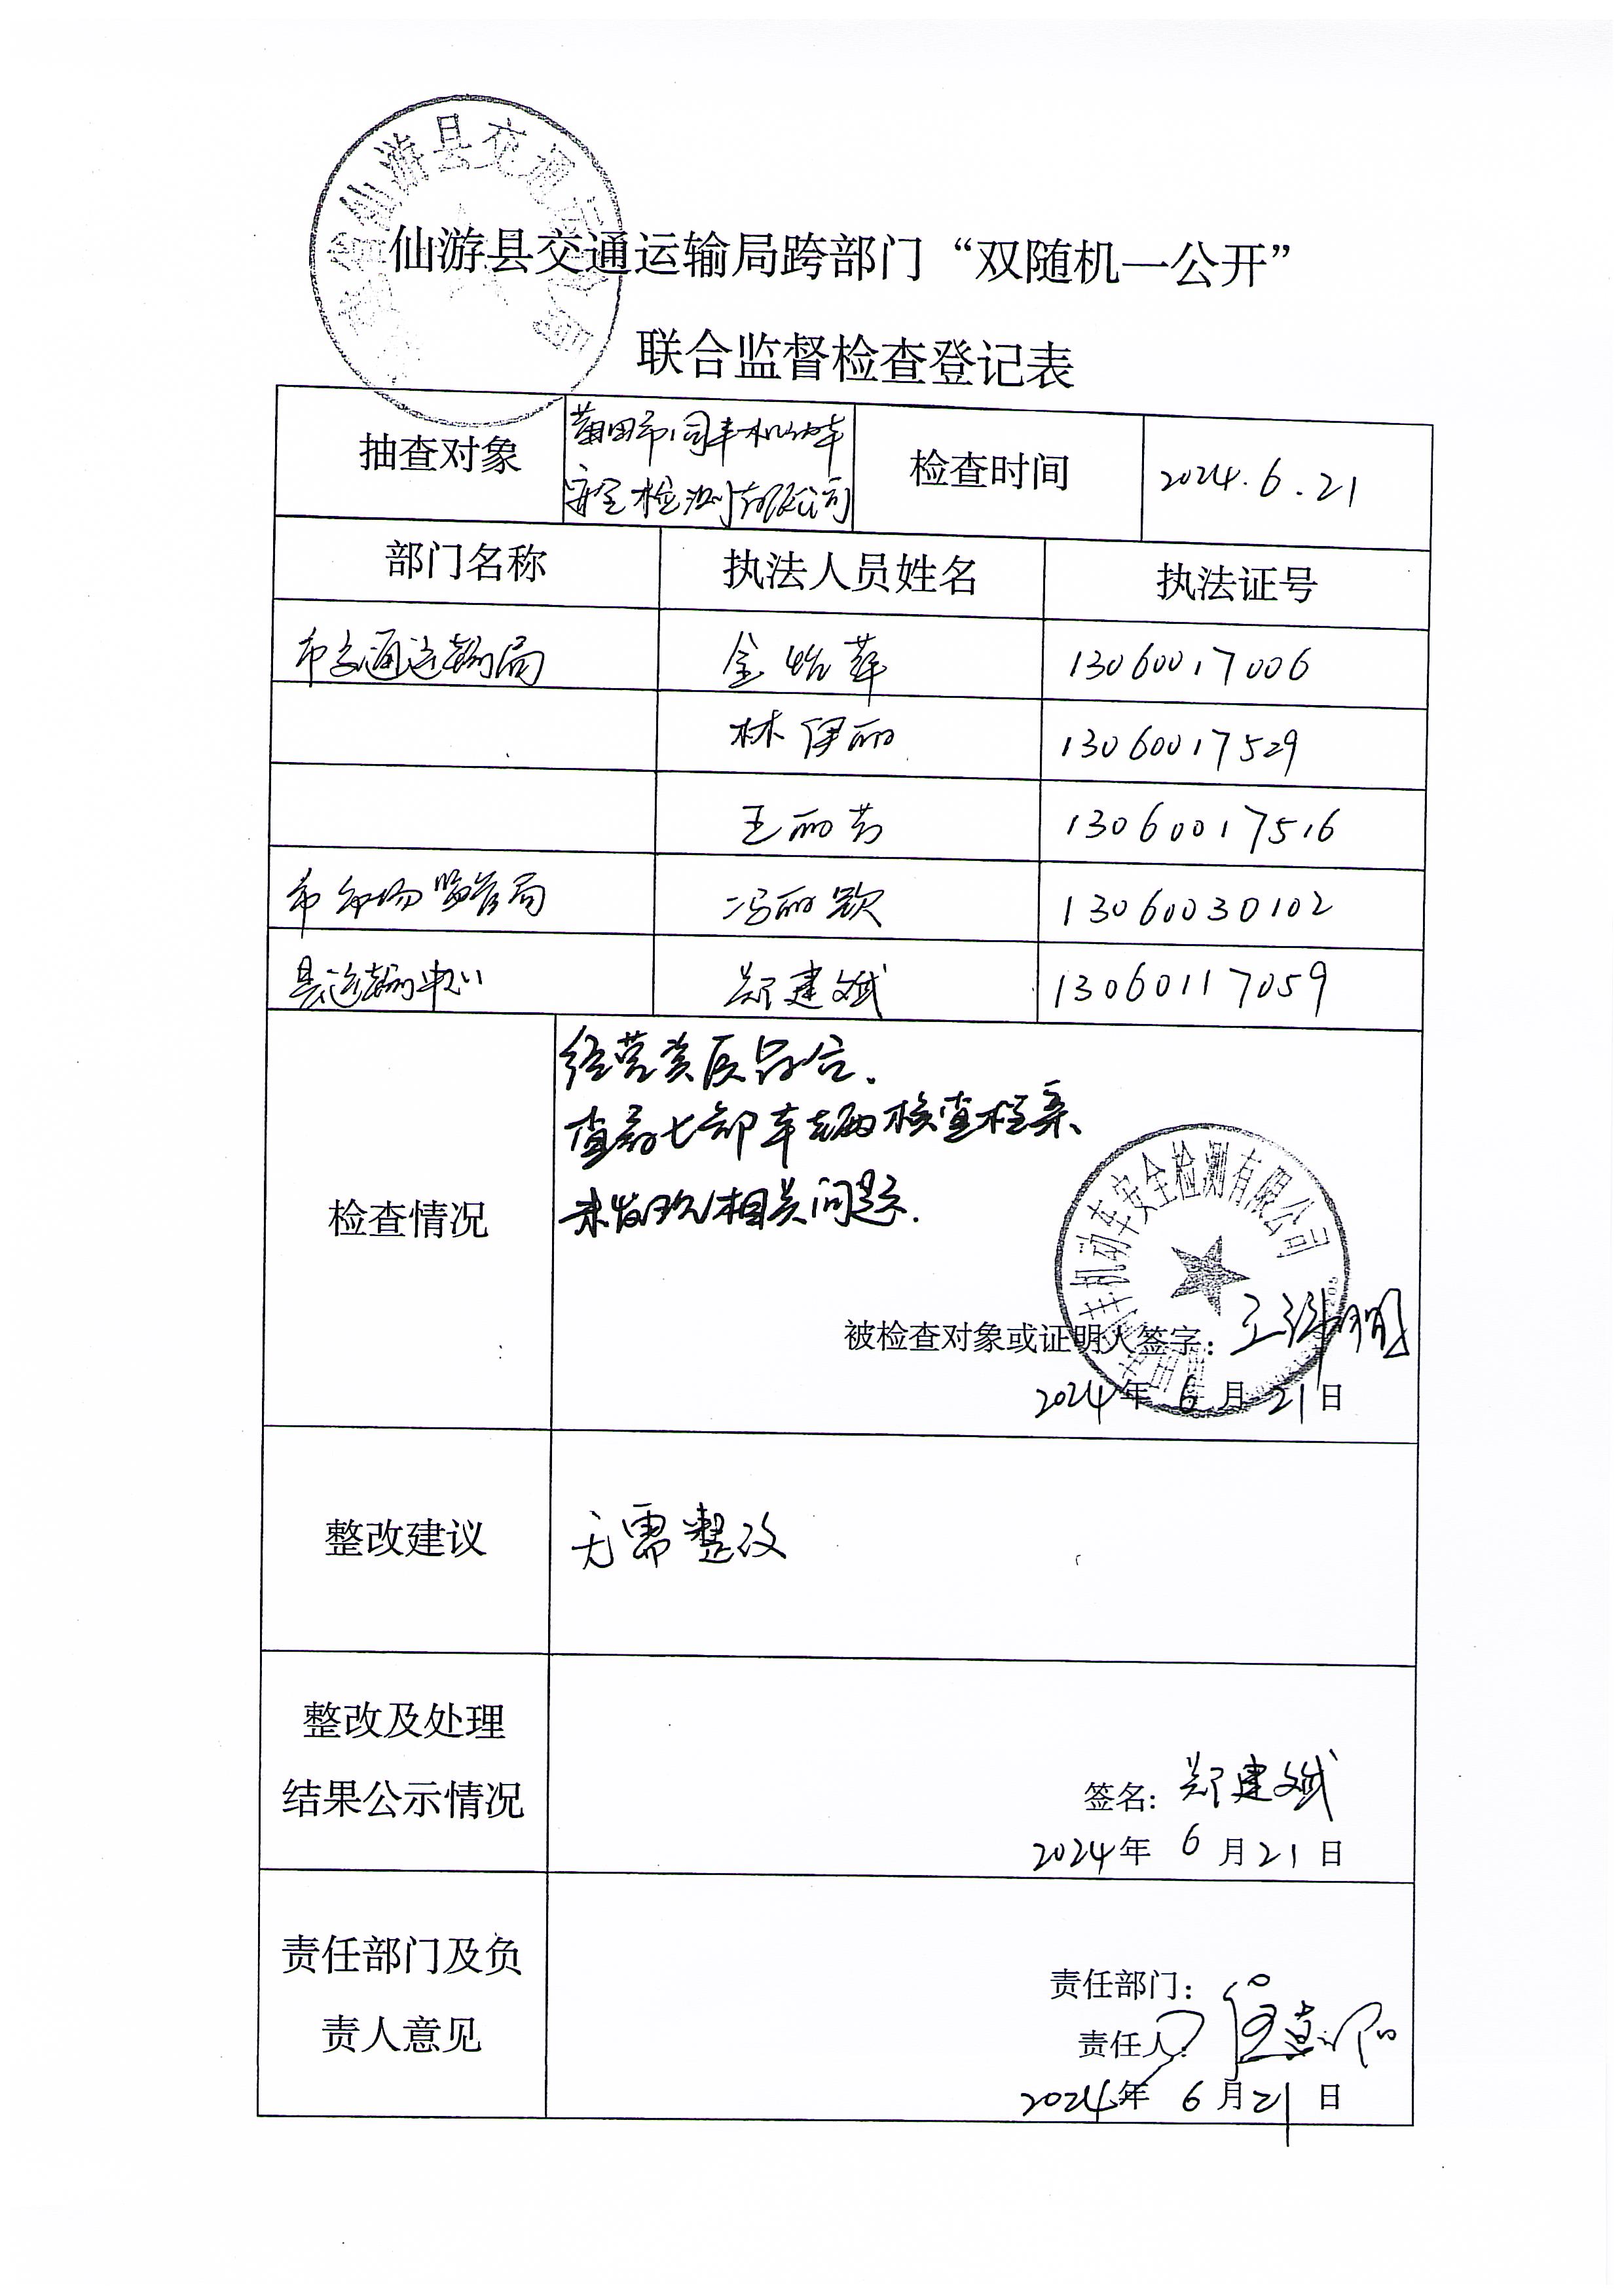 仙游县交通运输局跨部门“双随机一公开”
联合监督检查登记表
抽查对象 莆田市同丰机动车 检查时间 2024.6.21
安全检测有限公司
部门名称 执法人员姓名 执法证号
市交通运输局 金怡萍 13060017006
林伊丽 13060017529
王丽芳 13060017516
市市场监管局 冯丽 13060030102
县运输中心 郑建斌 13060117059
检查情况
经营资质符合。
查看七部车辆检查档案、
未发现相关问题.
机动车安全检测有限公司
被检查对象或证明人签字:
2024年6月21日
整改建议 无需整改
整改及处理
结果公示情况
签名: 郑建斌
2024年6月21日
责任部门及负
责人意见
责任部门:
责任人:
2024年6月21日
仙游县交通运输局